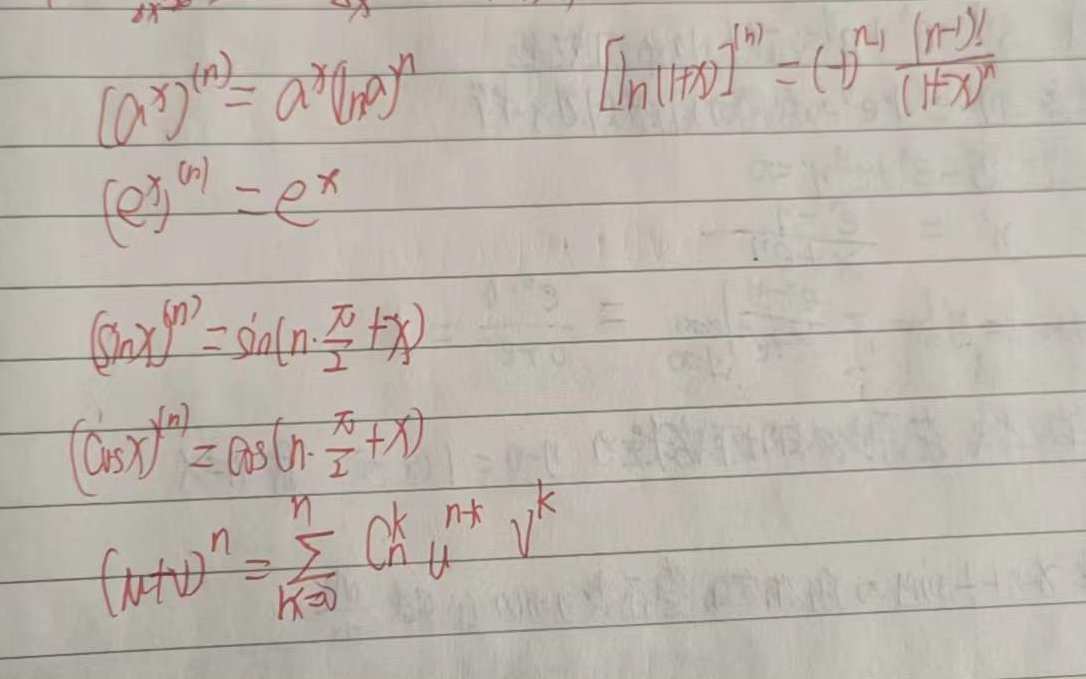 (aˣ)⁽ⁿ⁾ = aˣ(ln a)ⁿ
[ln(1+x)]⁽ⁿ⁾ = (-1)ⁿ⁻¹ (n-1)!/(1+x)ⁿ
(eˣ)⁽ⁿ⁾ = eˣ
(sinx)⁽ⁿ⁾ = sin(n·π/2+x)
(cosx)⁽ⁿ⁾ = cos(n·π/2+x)
(u+v)ⁿ = Σₖ₌₀ⁿ Cₙᵏ uⁿ⁻ᵏ vᵏ